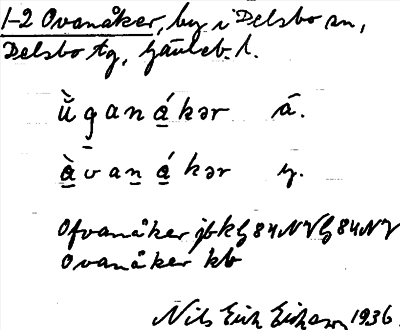 1-2 Ovanåker, by i Delsbo sn,
Delsbo tg, Gävleb. l.
ù̆ g a n á̱ k ə r ä.
à̱ v a n̲ á̱ k ə r y.
Ofvanåker jbk G 84 NV G 84 NV
Ovanåker kb
Nils Erik Erikson 1936